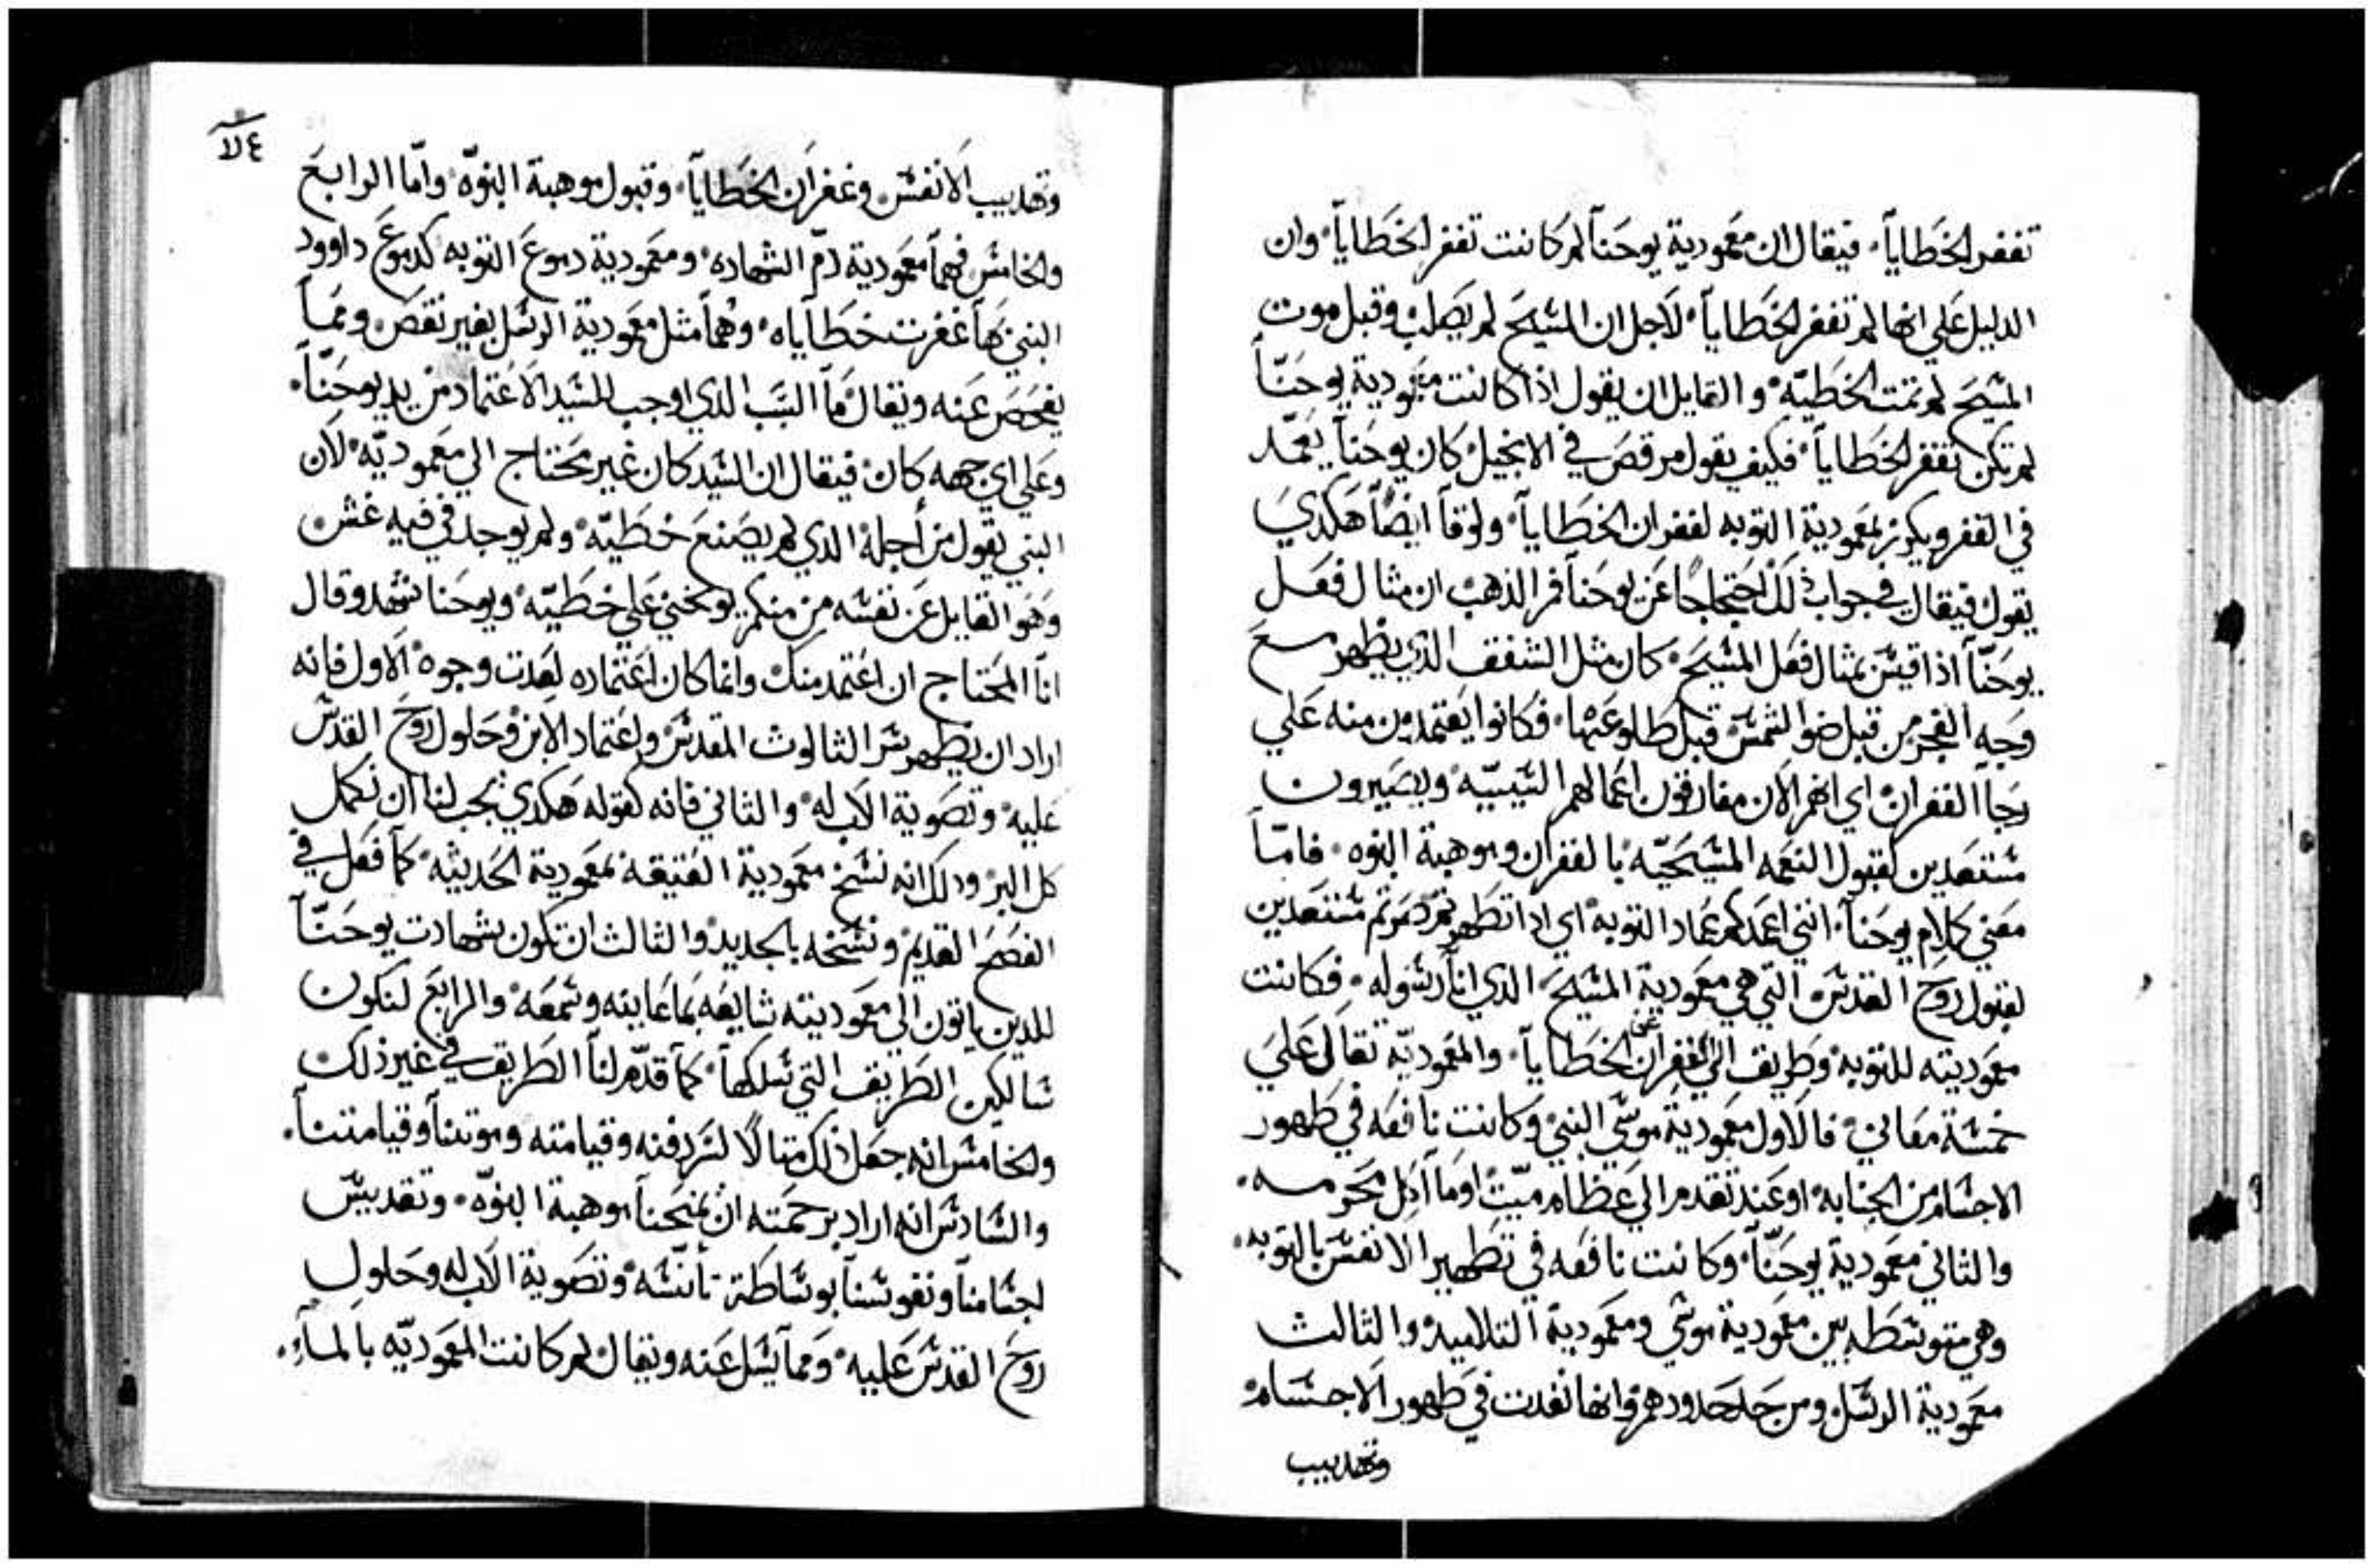 تغفر الخطايا فيقال ان معمودية يوحنا لم كانت تغفر الخطايا وان
الدليل علي انها لم تغفر الخطايا لاجل ان المسيح لم يصلب وقبل موت
المسيح لم تمت الخطيه والقايل ان يقول اذا كانت معمودية يوحنا
لم تكن تغفر الخطايا فكيف يقول مرقص في الانجيل كان يوحنا يعمد
في القفر ويكرز بمعمودية التوبه لغفران الخطايا ولوقا ايضا هكدي
يقول فيقال في جواب ذلك احتجاجا عن يوحنا فم الذهب ان مثال فعل
يوحنا اذا قيس بمثال فعل المسيح كان مثل الشفق الذي يظهر مع
وجه الفجر من قبل ضو الشمس قبل طلوعها فكانوا يعتمدون منه علي
رجا الغفران اي انهم الان مفارقون اعمالهم السيه ويصيرون
مستعدين لقبول النعمه المسيحيه بالغفران وموهبة البنوه فاما
معني كلام يوحنا انني اعمدكم عماد التوبه اي اداتطهرتم صرتم مستعدين
لقبول روح القدس التي هي معمودية المسيح الذي انا رسوله فكانت
معموديته للتوبه وطريق الي غفران الخطايا والمعموديه تقال علي
خمسة معاني فالاول معمودية موسي النبي وكانت نافعه في طهور
الاجسام من الجنابه او عند تقدم الي عظام ميت او ما اكل محرومه
والثاني معمودية يوحنا وكانت نافعه في تطهير الانفس بالتوبه
وهي متوسطه بين معمودية موسي ومعمودية التلاميد والثالث
معمودية الرسل ومن حل حدودهم وانها نفدت في طهور الاجسام
وتهديب
٤٧
وتهديب الانفس وغفران الخطايا وقبول موهبة البنوه واما الرابع
والخامس فهما معمودية دم الشهاده ومعمودية دموع التوبه كدموع داوود
النبي بها غفرت خطاياه وهما مثل معمودية الرسل بغير نقص ومما
يفحص عنه ويقال ما السبب الدي اوجب للسيد الاعتماد من يد يوحنا
وعلي اي جهه كان فيقال ان السيد كان غير محتاج الي معموديه لان
النبي يقول من أجله الدي لم يصنع خطيه ولم يوجد في فيه غش
وهو القايل عن نفسه من منكم يوبخني علي خطيه ويوحنا شهد وقال
انا المحتاج ان اعتمد منك وانما كان اعتماده لعدت وجوه الاول فانه
اراد ان يظهر سر الثالوث المقدس واعتماد الابن وحلول روح القدس
عليه وتصوية الاب له والثاني فانه كقوله هكدي يجب لنا ان نكمل
كل البر ودلك انه نسخ معمودية العتيقه بمعمودية الحديثه كما فعل في
الفصح القديم ونسخه بالجديد والثالث ان تكون شهادت يوحنا
للدين ياتون الي معموديته شايعه بما عاينه وسمعه والرابع لنكون
سالكين الطريق التي سلكها كما قدم لنا الطريق في غير ذلك
والخامس انه جعل ذلك متالا لسر دفنه وقيامته وموتنا وقيامتنا
والسادس انه اراد برحمته ان يمنحنا موهبة البنوه وتقديس
لجسامنا ونفوسنا بوساطة تأنسه وتصوية الاب له وحلول
روح القدس عليه ومما يسل عنه ويقال لم كانت المعموديه بالمآء